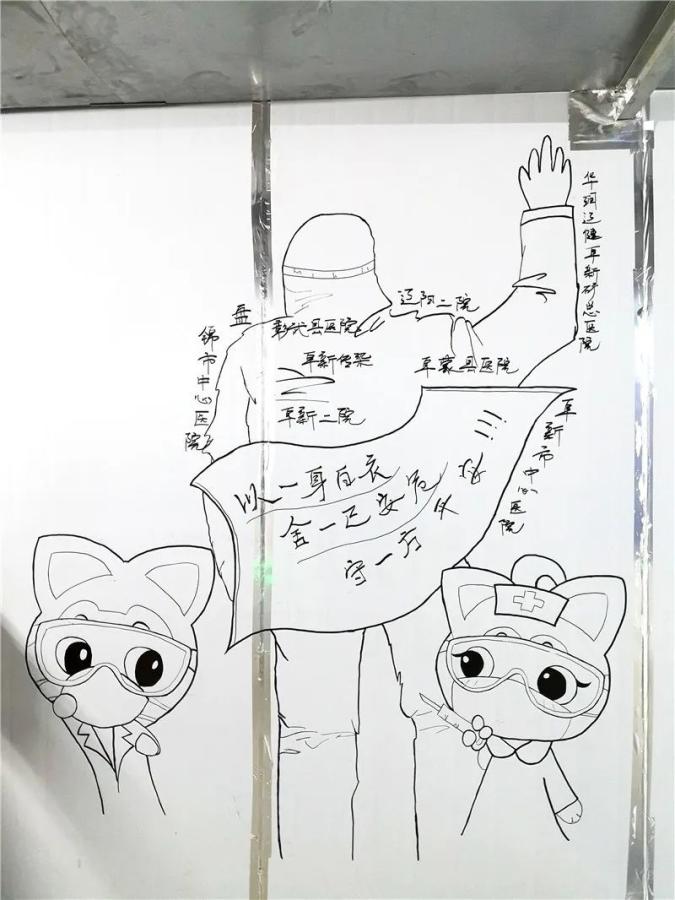 华润辽健阜新矿总医院
辽阳二院
彰武县医院
阜新传染
阜蒙县医院
阜新二院
盘
锦市中心医院
阜新市中心医院
以一身白衣
舍一己安危
守一方